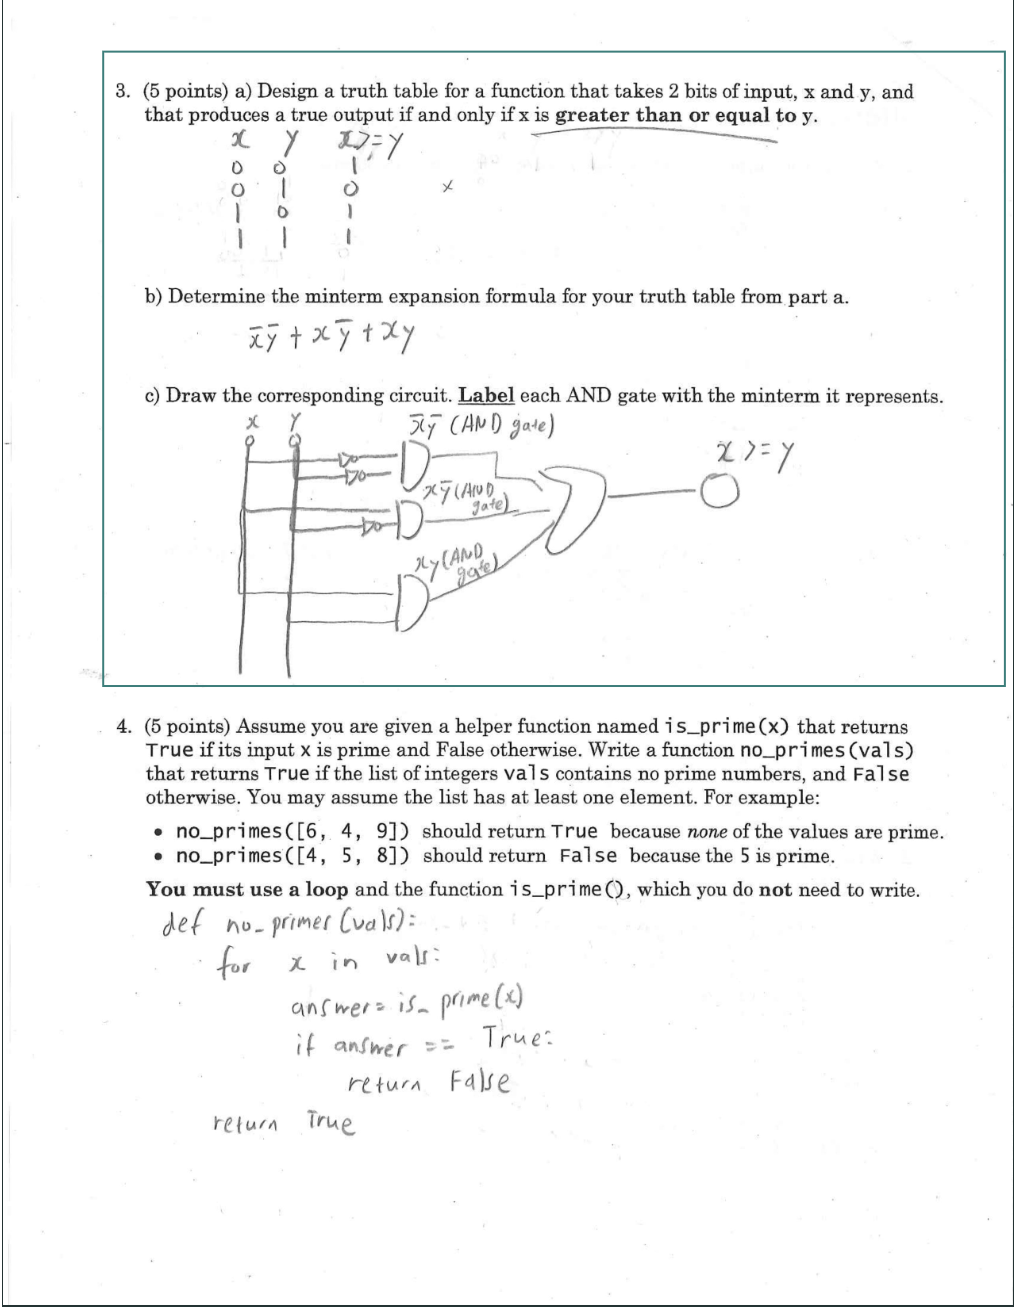 3. (5 points) a) Design a truth table for a function that takes 2 bits of input, x and y, and
that produces a true output if and only if x is greater than or equal to y.
x y x>=y
0 0 1
0 1 0
x
1 0 1
1 1 1
b) Determine the minterm expansion formula for your truth table from part a.
x̄ȳ + xȳ + xy
c) Draw the corresponding circuit. Label each AND gate with the minterm it represents.
x y
x̄ȳ (AND gate)
x >= y
xȳ (AND
gate)
xy (AND
gate)
4. (5 points) Assume you are given a helper function named is_prime(x) that returns
True if its input x is prime and False otherwise. Write a function no_primes(vals)
that returns True if the list of integers vals contains no prime numbers, and False
otherwise. You may assume the list has at least one element. For example:
• no_primes([6, 4, 9]) should return True because none of the values are prime.
• no_primes([4, 5, 8]) should return False because the 5 is prime.
You must use a loop and the function is_prime(), which you do not need to write.
def no_primes (vals):
for x in vals:
answer = is_prime(x)
if answer == True:
return False
return True